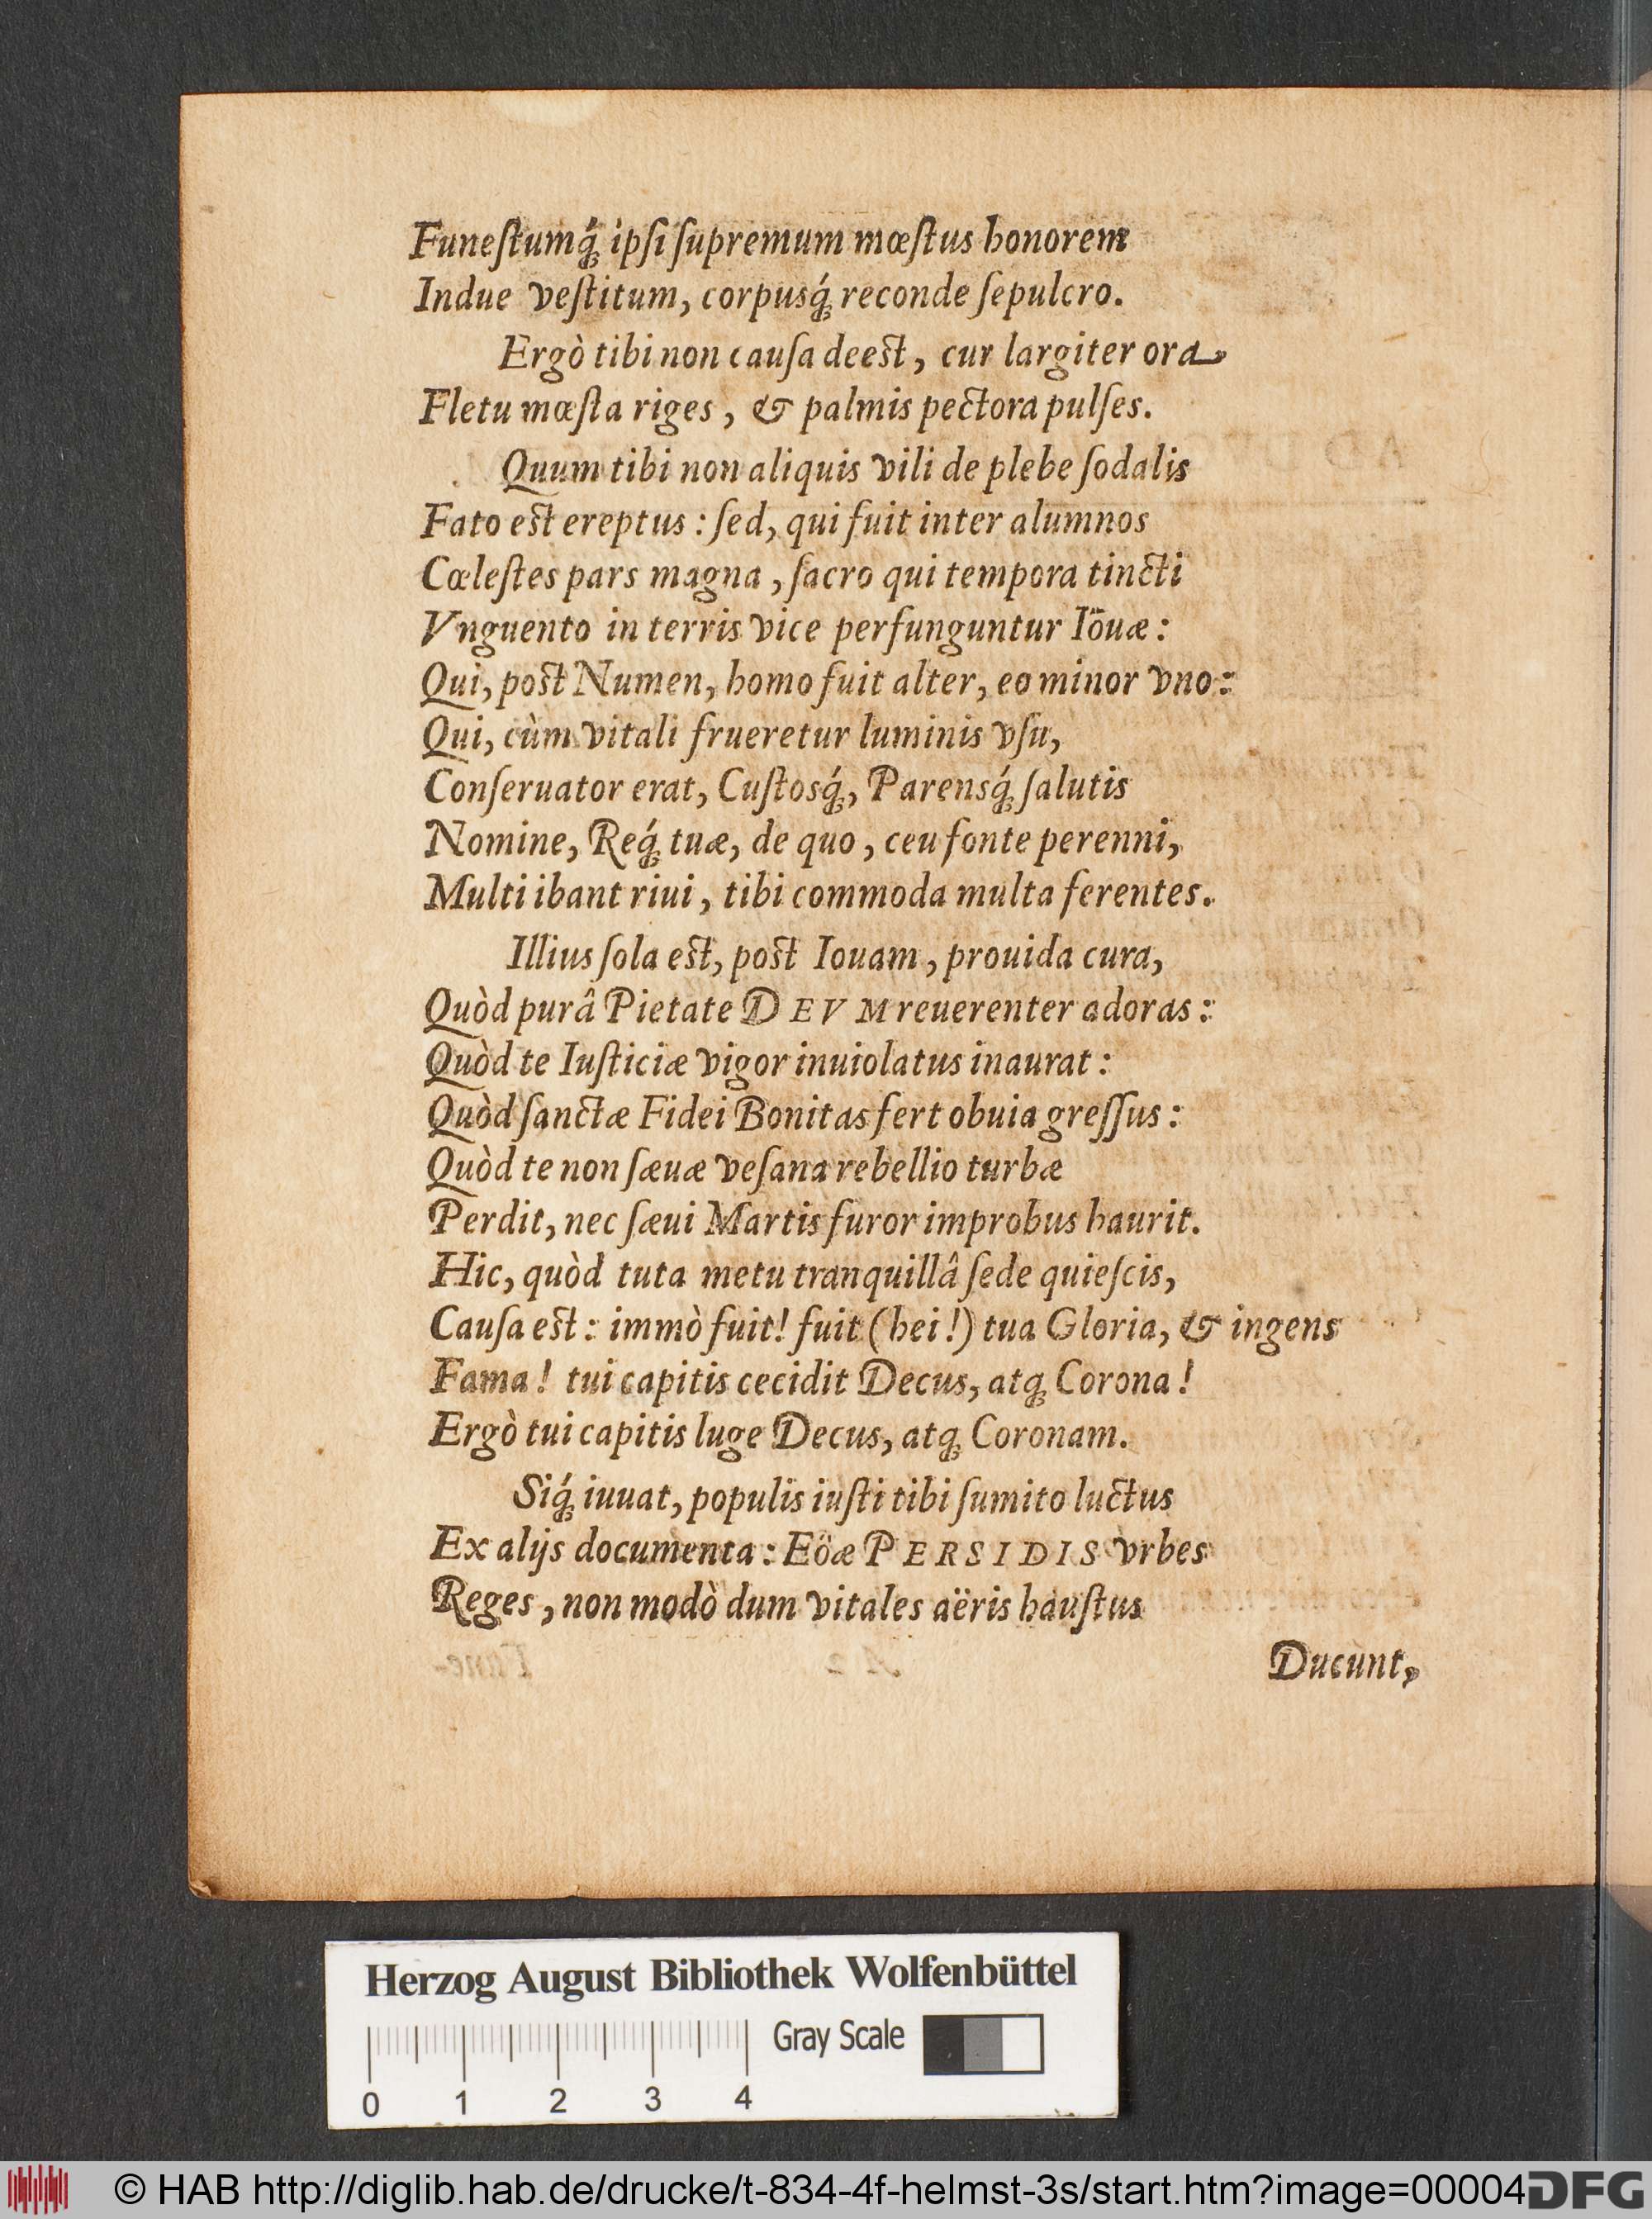 Funeſtumq́; ipſi ſupremum mœſtus honorem
Indue veſtitum, corpusq́; reconde ſepulcro.
Ergò tibi non cauſa deeſt, cur largiter ora
Fletu mœſta riges, & palmis pectora pulſes.
Quum tibi non aliquis vili de plebe ſodalis
Fato eſt ereptus: ſed, qui fuit inter alumnos
Cœleſtes pars magna, ſacro qui tempora tincti
Vnguento in terris vice perfunguntur Iöuæ:
Qui, poſt Numen, homo fuit alter, eo minor vno:
Qui, cùm vitali frueretur luminis vſu,
Conſeruator erat, Cuſtosq́;, Parensq́; ſalutis
Nomine, Req́; tuæ, de quo, ceu fonte perenni,
Multi ibant riui, tibi commoda multa ferentes.
Illius ſola eſt, poſt Iouam, prouida cura,
Quòd purâ Pietate DEVM reuerenter adoras:
Quòd te Iuſticiæ vigor inuiolatus inaurat:
Quòd ſanctæ Fidei Bonitas fert obuia greſſus:
Quòd te non ſæuæ veſana rebellio turbæ
Perdit, nec ſæui Martis furor improbus haurit.
Hic, quòd tuta metu tranquillâ ſede quieſcis,
Cauſa eſt: immò fuit! fuit (hei!) tua Gloria, & ingens
Fama! tui capitis cecidit Decus, atq; Corona!
Ergò tui capitis luge Decus, atq; Coronam.
Siq́; iuuat, populis iuſti tibi ſumito luctus
Ex alijs documenta: Eöæ PERSIDIS vrbes
Reges, non modò dum vitales aëris hauſtus
Ducunt,
Herzog August Bibliothek Wolfenbüttel
Gray Scale
0 1 2 3 4
© HAB http://diglib.hab.de/drucke/t-834-4f-helmst-3s/start.htm?image=00004
DFG